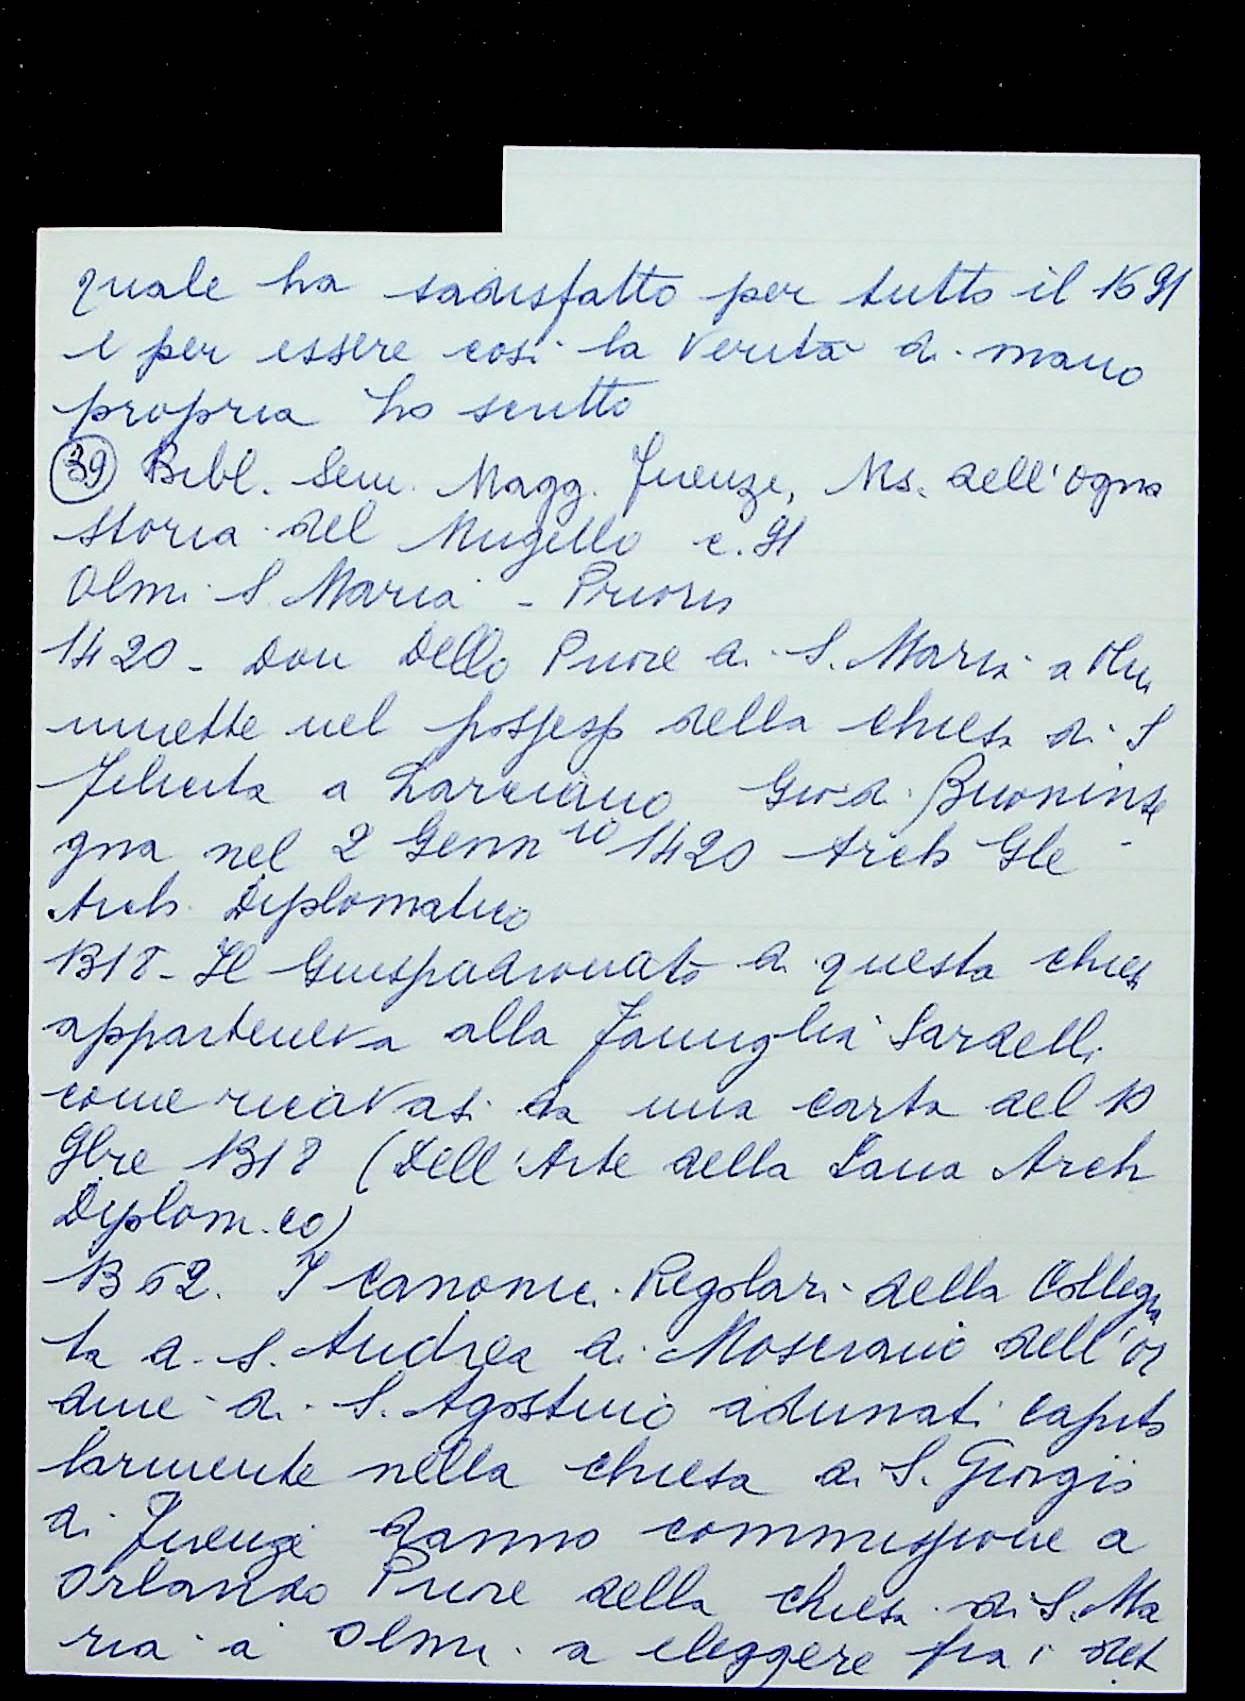 quale ha sadisfatto per tutto il 1691
e per essere così la verità di mano
propria ho scritto
39 Bibl. Sem. Magg. Firenze, Ms. dell'Ogna
storia del Mugello c. 91
Olmi S Maria - Priori
1420 - Don Dello Priore di S. Maria a Olmi
mette nel possesso della chiesa di S
Felicita a Larciano Gio. di Buoninse
gna nel 2 Genn io 1420 Arch Gle -
Arch. Diplomatico
1318 - Il Giuspadronato di questa chiesa
apparteneva alla Famiglia Sardelli
come ricavasi da una carta del 10
9bre 1318 (Dell'Arte della Lana Arch
Diplom.co)
1362. I Canonici Regolari della Collegia
ta di S. Andrea di Mosciano dell'or
dine di S. Agostino adunati capito
larmente nella chiesa di S. Giorgio
di Firenze danno commissione a
Orlando Priore della chiesa di S. Ma
ria a Olmi a eleggere fra i det